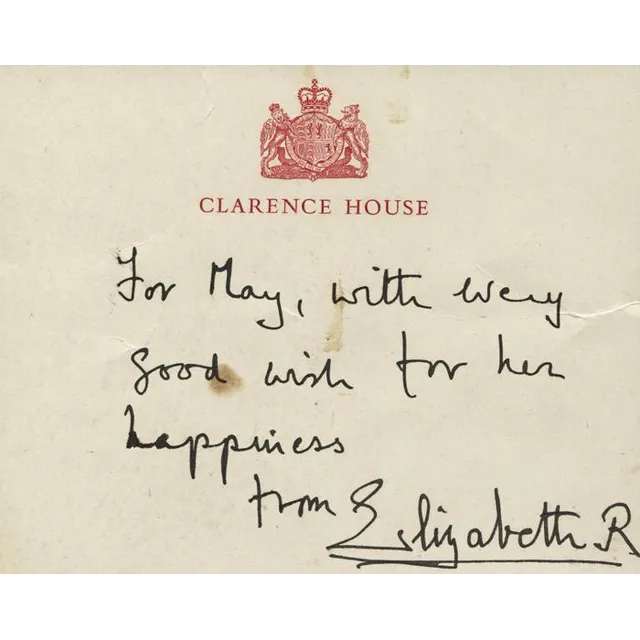 CLARENCE HOUSE
For May, with every
good wish for her
happiness
from Elizabeth R